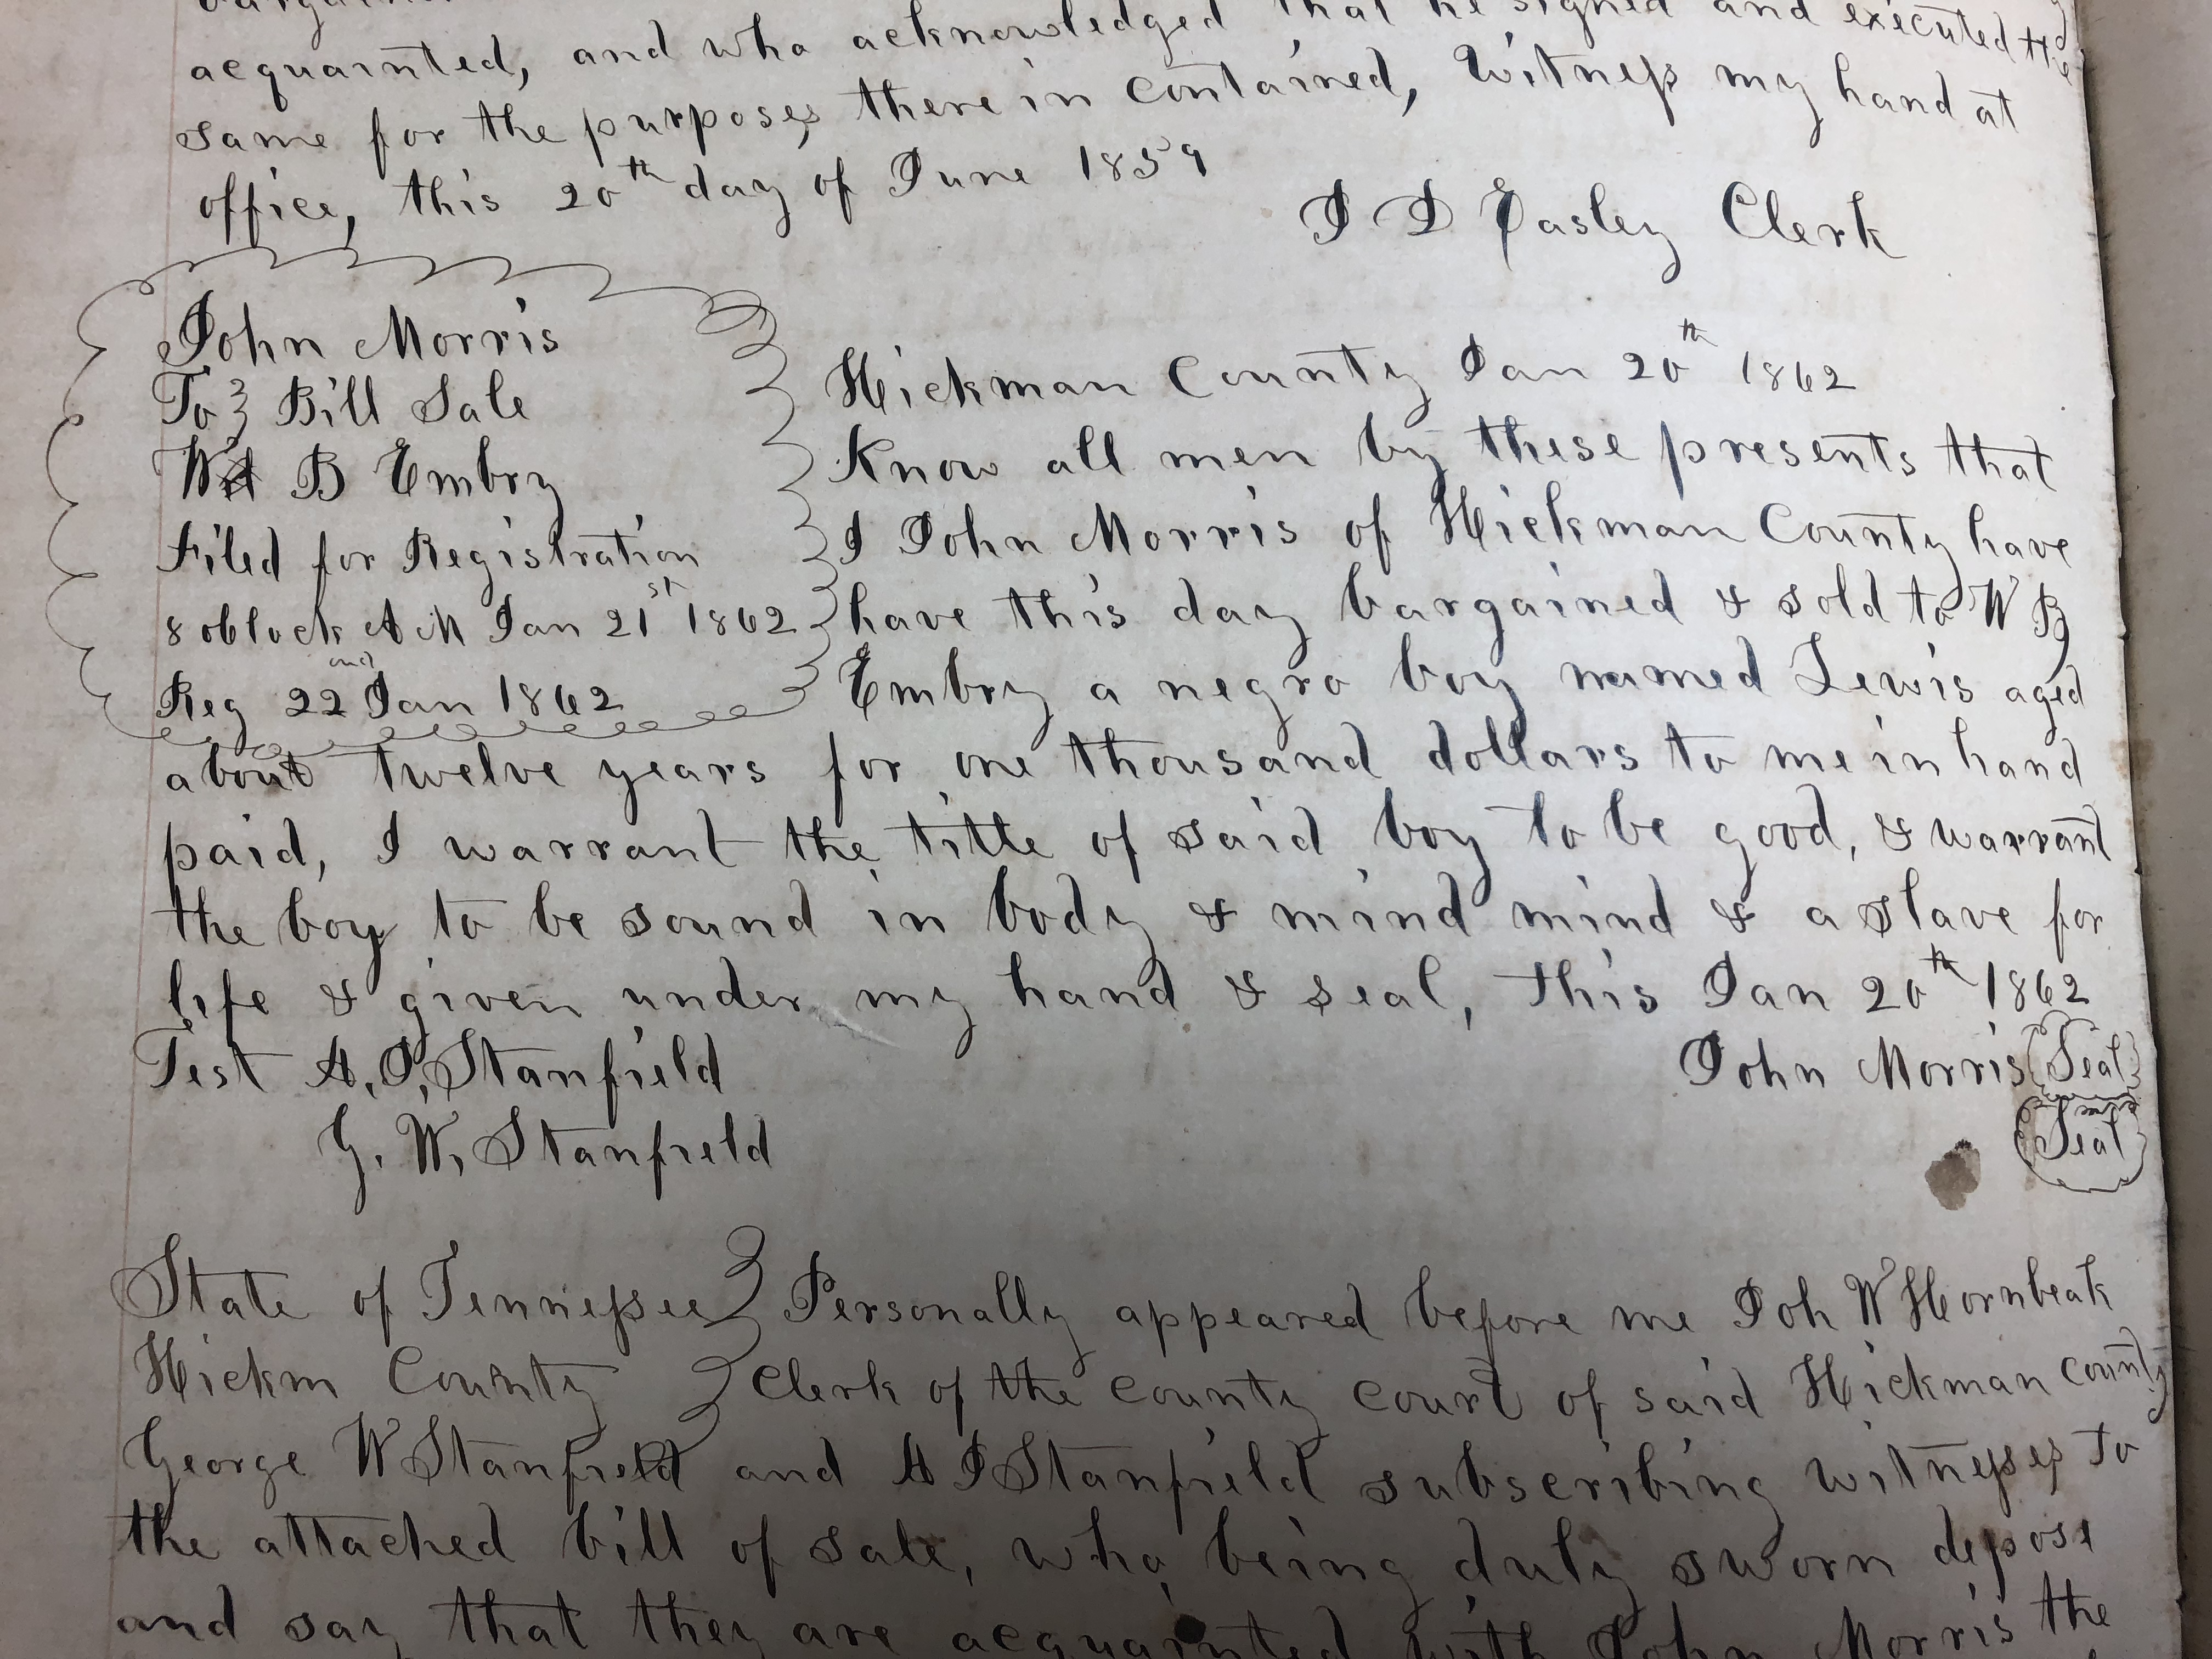 acquainted, and who acknowledged that he signed and executed the
same for the purposes there in contained, Witness my hand at
office, this 20th day of June 1859
J D Easley Clerk
John Morris
To } Bill Sale
W B Embry
Filed for Registration
8 oblock A M Jan 21st 1862
Reg 22nd Jan 1862
Hickman County Jan 20th 1862
Know all men by these presents that
I John Morris of Hickman County have
have this day bargained & sold to W B
Embry a negro boy named Lewis aged
about twelve years for one thousand dollars to me in hand
paid, I warrant the title of said boy to be good, & warrant
the boy to be sound in body & mind mind & a slave for
life & given under my hand & seal, this Jan 20th 1862
Test A. J. Stanfield
John Morris (Seal)
G. W. Stanfield
(Seal)
State of Tennessee } Personally appeared before me Joh W Hornbeak
Hickm County } Clerk of the County Court of said Hickman County
George W Stanfield and A J Stanfield subscribing witnesses to
the attached bill of sale, who being duly sworn depose
and say that they are acquainted with John Morris the